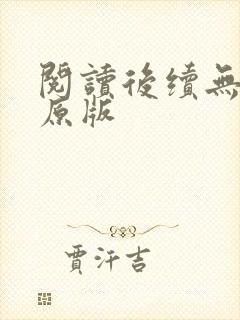 閱讀後續無
原版
賈汗吉